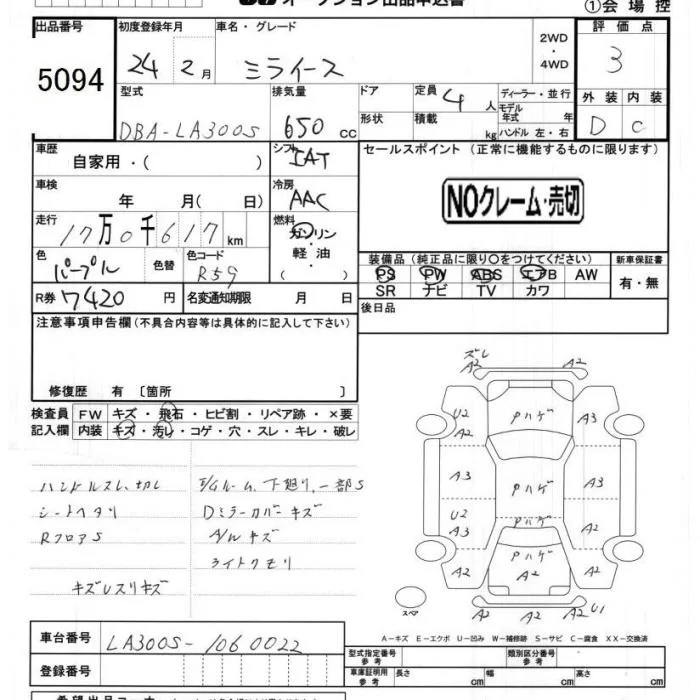 オークション出品申込書
①会場控
出品番号 初度登録年月 車名・グレード 2WD・4WD 評価点
5094 24 2月 ミライース 3
型式 排気量 ドア 定員 4人 ディーラー・並行 外装 内装
形状 積載 kg モデル年式 年
ハンドル 左・右
DBA-LA300S 650cc D C
車歴 シフト セールスポイント (正常に機能するものに限ります)
自家用・( ) IAT
車検 冷房 NOクレーム・売切
年 月( 日) AAC
走行 燃料
17万0千617km ガソリン
軽油
( )
色 色替 色コード 装備品 (純正品に限り○をつけてください) 新車保証書
パープル R59 PS PW ABS エアB AW 有・無
SR ナビ TV カワ
R券 7420円 名変通知期限 月 日 後日品
注意事項申告欄 (不具合内容等は具体的に記入して下さい)
修復歴 有 〔箇所 〕
検査員 FW キズ・飛石・ヒビ割・リペア跡・×要
記入欄 内装 キズ・汚レ・コゲ・穴・スレ・キレ・破レ
ハンドルスレ、切レ E/Gルーム、下廻り、一部S
シートヘタリ Dミラーカバーキズ
RフロアS A/Wキズ
ライトクモリ
キズUスリキズ
ズレ
A2 A2
U2 PハゲA3
A2
A3 Pハゲ A3
U2 Pハゲ A2
A3
Pハゲ
A2 A2 A2
A2 A2 U1
スペア
A-キズ E-エクボ U-凹み W-補修跡 S-サビ C-腐食 XX-交換済
車台番号 LA300S-1060022
登録番号
型式指定番号 参考 類別区分番号 参考
車庫証明用 参考 長さ cm 幅 cm 高さ cm